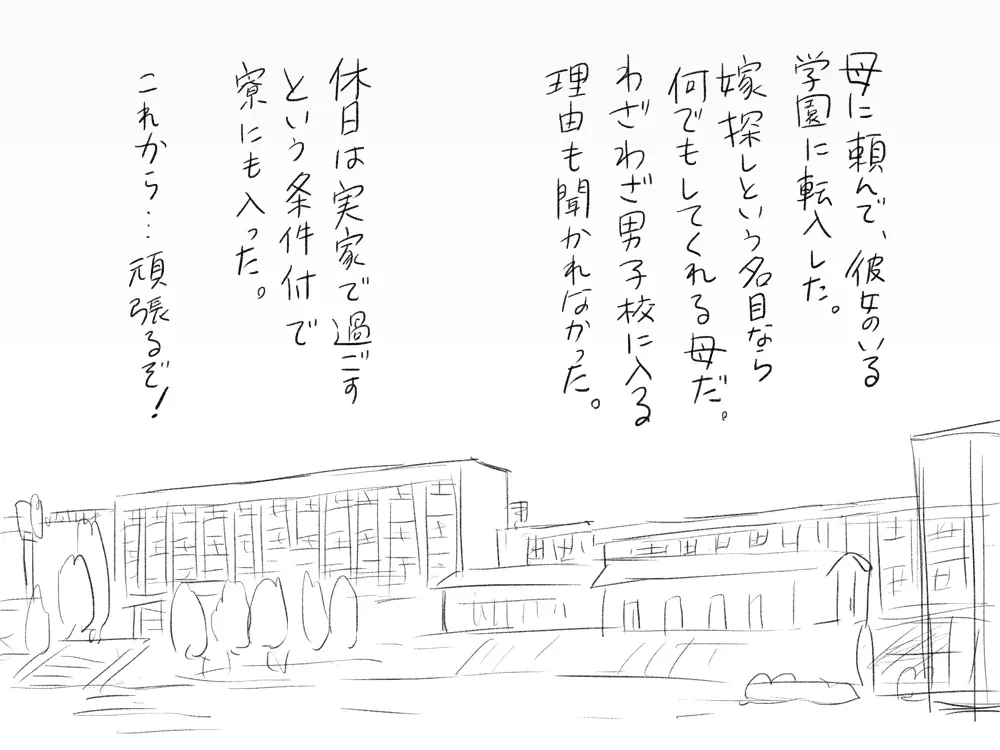 母に頼んで、彼女のいる
学園に転入した。
嫁探しという名目なら
何でもしてくれる母だ。
わざわざ男子校に入る
理由も聞かれなかった。
休日は実家で過ごす
という条件付で
寮にも入った。
これから…頑張るぞ!